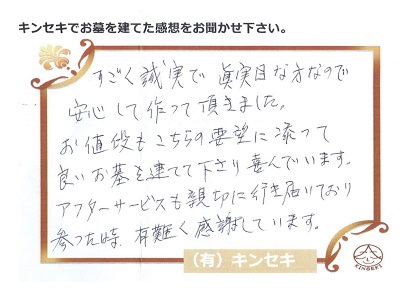 キンセキでお墓を建てた感想をお聞かせ下さい。
すごく誠実で真実目な方なので
安心して作って頂きました。
お値段もこちらの要望に添って
良いお墓を建てて下さり喜んでいます。
アフターサービスも親切に行き届いており
参った時、有難く感謝しています。
（有）キンセキ
KINSEKI